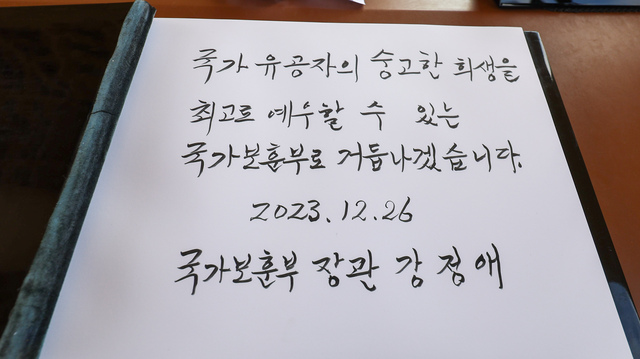 국가 유공자의 숭고한 희생을
최고로 예수할 수 있는
국가보훈부로 거듭나겠습니다.
2023.12.26
국가보훈부 장관 강정애